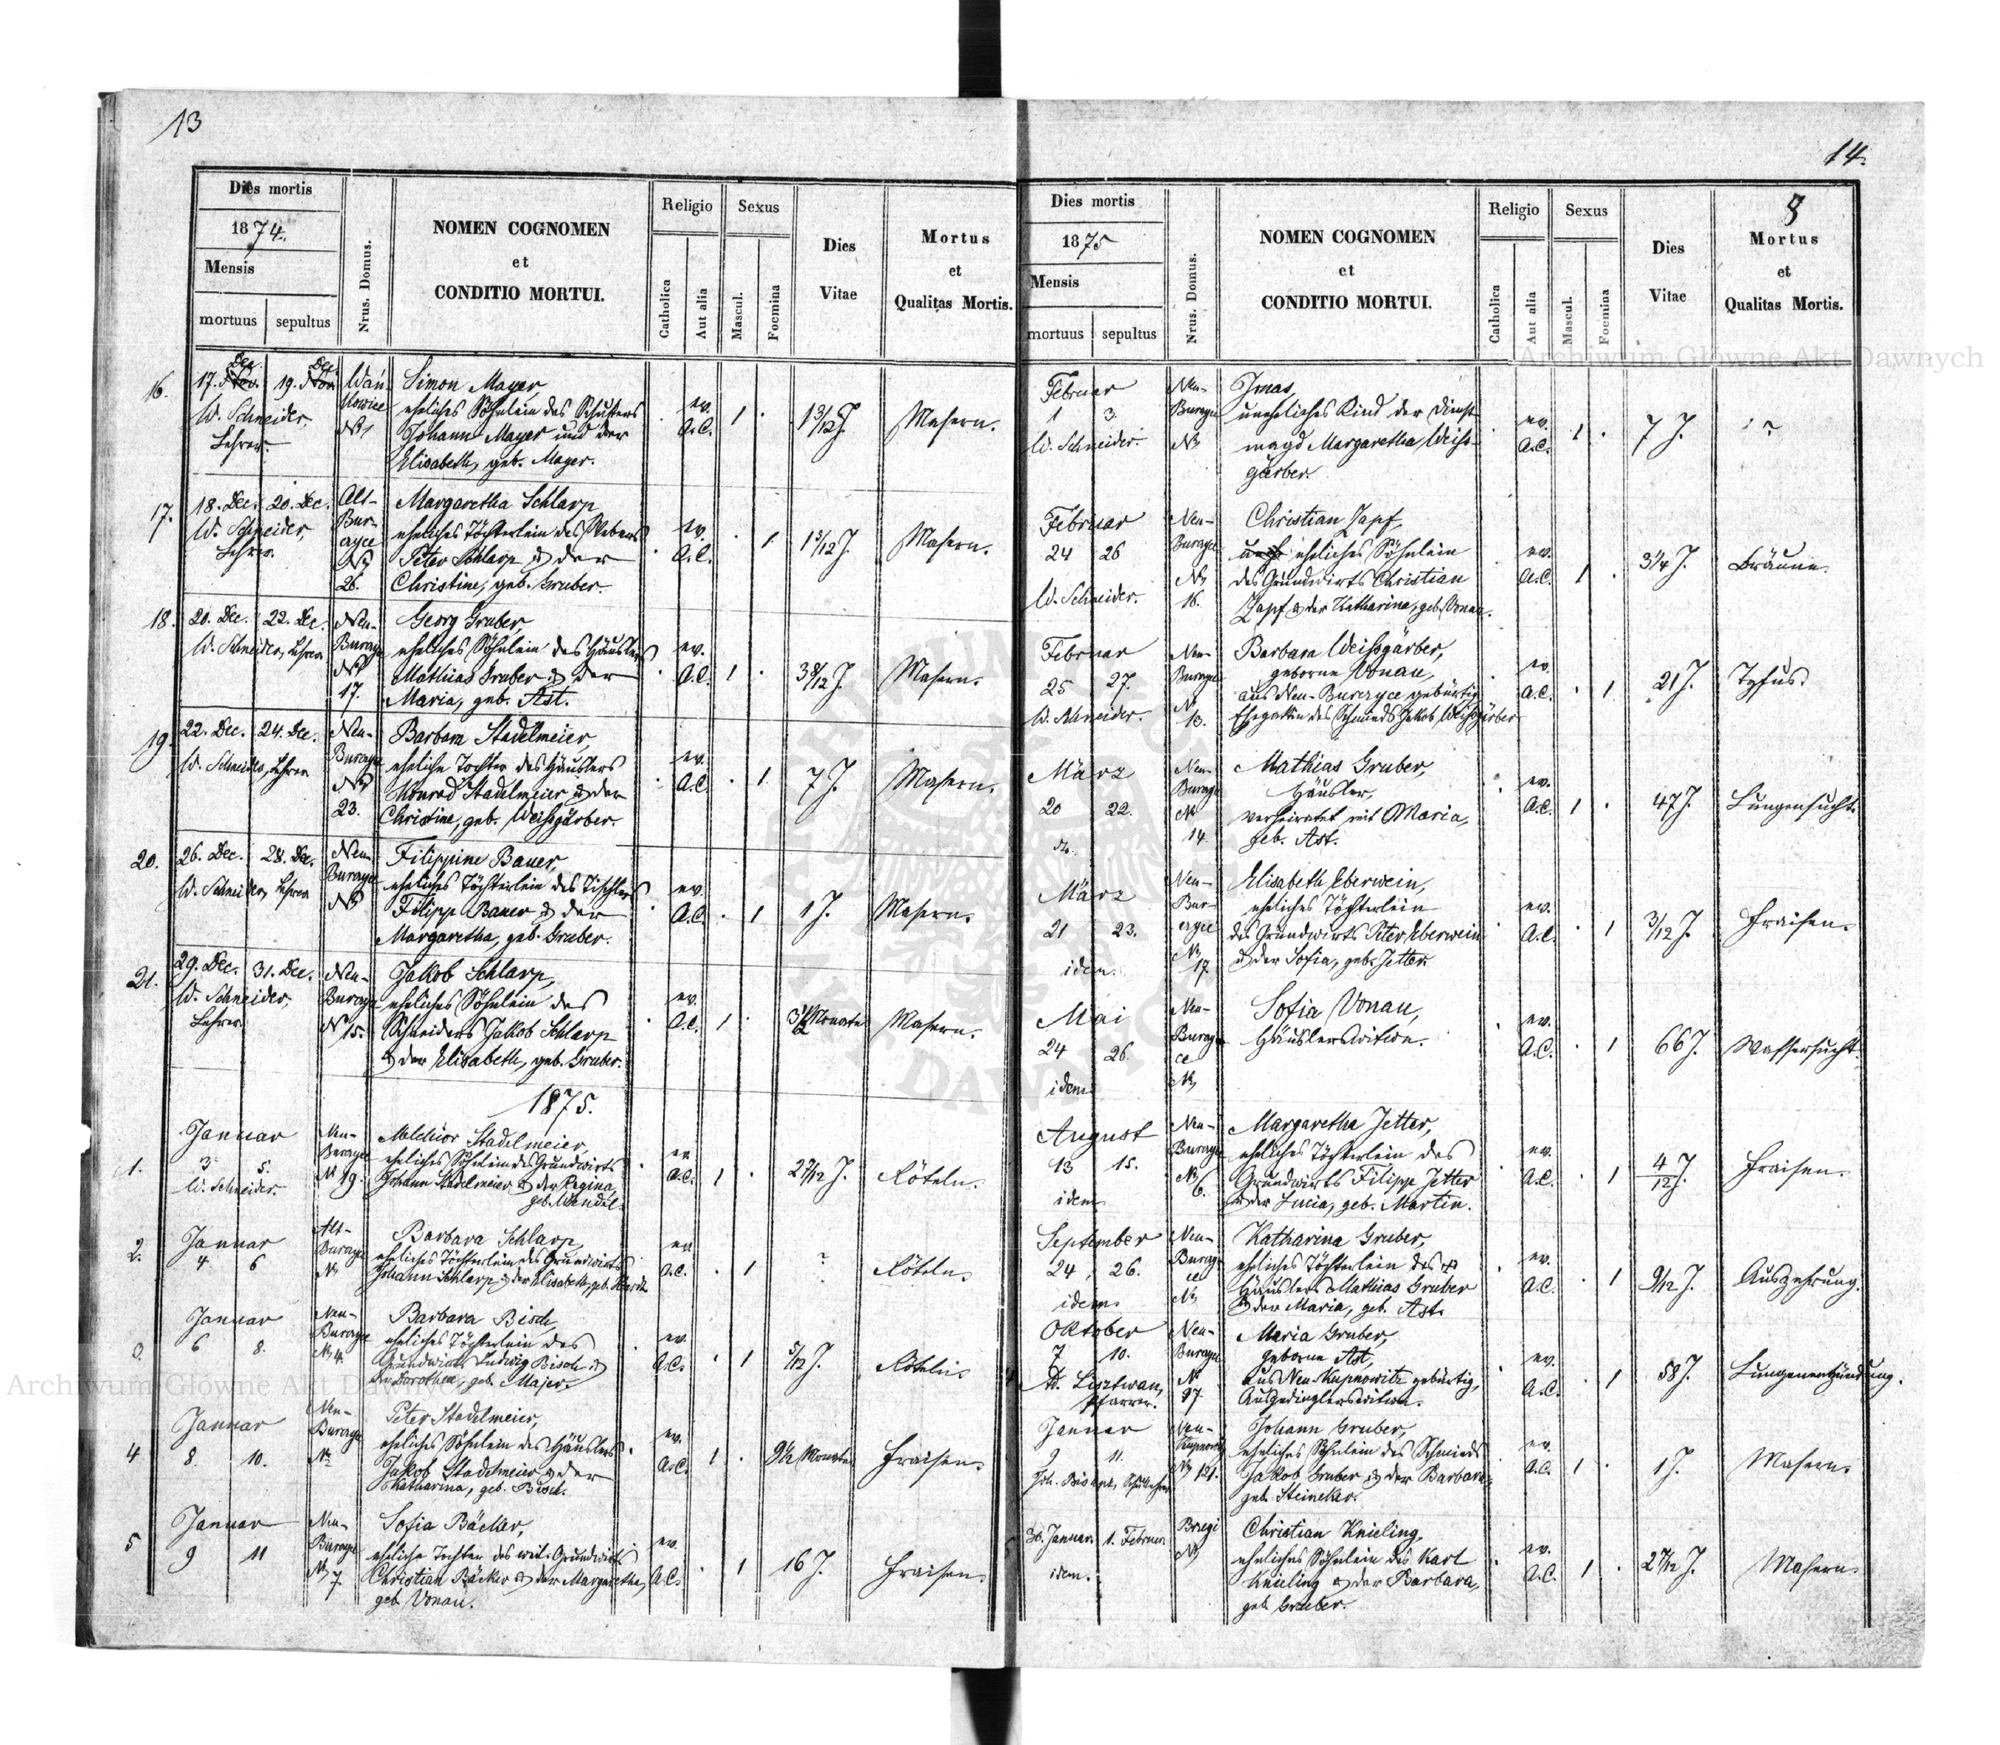 13
Dies mortis
1874.
Mensis
mortuus sepultus
Nrus. Domus.
NOMEN COGNOMEN
et
CONDITIO MORTUI.
Religio
Catholica
Aut alia
Sexus
Mascul.
Foemina
Dies
Vitae
Mortus
et
Qualitas Mortis.
16.
17. Dec. 19. Dec.
W. Schneider,
Lehrer.
Simon Mayer,
eheliches Söhnlein des Schusters
Johann Mayer und der
Elisabeth, geb. Mayer.
ev.
A.C.
1
1 3/12 J.
Masern.
17.
18. Dec. 20. Dec.
W. Schneider,
Lehrer.
Alt-
Bur-
czyce
No
26.
Margaretha Schlarp
eheliches Töchterlein des Webers
Peter Schlarp & der
Christine, geb. Gruber.
ev.
A.C.
1
Masern.
18.
20. Dec. 22. Dec.
W. Schneider, Lehrer
Neu-
Burczyce
No
17.
Georg Gruber,
eheliches Söhnlein des Häuslers
Mathias Gruber & der
Maria, geb. Ast.
ev.
A.C.
1
Masern.
19.
22. Dec. 24. Dec.
W. Schneider, Lehrer
Neu-
Burczyce
No
23.
Barbara Stadelmeier,
eheliche Tochter des Häuslers
Konrad Stadelmeier & der
Christine, geb. Weissgärber.
ev.
A.C.
1
7 J.
Masern.
20.
26. Dec. 28. Dec.
W. Schneider, Lehrer
Neu-
Burczyce
No
Filippine Bauer,
eheliches Töchterlein des Tischlers
Filipp Bauer & der
Margaretha, geb. Gruber.
ev.
A.C.
1
1 J.
Masern.
21.
29. Dec. 31. Dec.
W. Schneider,
Lehrer.
Neu-
Burczyce
No 15.
Jakob Schlarp,
eheliches Söhnlein des
Schneiders Jakob Schlarp
& der Elisabeth, geb. Gruber.
ev.
A.C.
1
Monate
Masern.
1875.
1.
Januar
3 5.
W. Schneider.
Neu-
Burczyce
No 19.
Melchior Stadelmeier,
eheliches Söhnlein des Grundwirts
Johann Stadelmeier & der Regina
geb. Wendel.
ev.
A.C.
1
Röteln.
2.
Januar
4 6
Alt-
Burczyce
No
Barbara Schlarp,
eheliches Töchterlein des Grundwirts
Johann Schlarp & der Elisabeth, geb.
ev.
A.C.
1
?
Röteln.
3.
Januar
6 8.
Neu-
Burczyce
No 4.
Barbara Bisch,
eheliches Töchterlein des
Grundwirts Ludwig Bisch &
der Dorothea, geb. Majer.
ev.
A.C.
1
5/12 J.
Röteln
4
Januar
8. 10.
Neu-
Burczyce
No
Peter Stadelmeier,
eheliches Söhnlein des Häuslers
Jakob Stadelmeier & der
Katharina, geb. Bisch.
ev.
A.C.
1
9 1/2 Monate
Fraisen.
5
Januar
9 11
Neu-
Burczyce
No 7.
Sofia Bäcker,
eheliche Tochter des weil. Grundwirts
Christian Bäcker & der Margaretha,
geb. Vonau.
ev.
A.C.
1
16 J.
Fraisen.
14.
8
Dies mortis
1875
Mensis
mortuus sepultus
Nrus. Domus.
NOMEN COGNOMEN
et
CONDITIO MORTUI.
Religio
Catholica
Aut alia
Sexus
Mascul.
Foemina
Dies
Vitae
Mortus
et
Qualitas Mortis.
Februar
1 3.
W. Schneider.
Neu-
Burczyce
No
uneheliches Kind der Dienst-
magd Margaretha Weiss-
gärber.
ev.
A.C.
1
7 J.
?
Februar
24 26
W. Schneider.
Neu-
Burczyce
No
16.
Christian Zapf,
eheliches Söhnlein
des Grundwirts Christian
Zapf & der Katharina, geb. Vonau.
ev.
A.C.
1
3 1/4 J.
Bräune.
Februar
25 27.
W. Schneider.
Neu-
Burczyce
No
13.
Barbara Weissgärber,
geborne Vonau,
aus Neu-Burczyce gebürtig,
Ehegattin des Schmieds Jakob Weissgärber
ev.
A.C.
1
21 J.
Tyfus.
März
20 22.
Neu-
Burczyce
No
14.
Mathias Gruber,
Häusler,
verheiratet mit Maria,
geb. Ast.
ev.
A.C.
1
47 J.
Lungensucht.
März
21 23.
idem.
Neu-
Bur-
czyce
No
17.
Elisabeth Eberwein,
eheliches Töchterlein
des Grundwirts Peter Eberwein
& der Sofia, geb. Jetter.
ev.
A.C.
1
3/12 J.
Fraisen.
Mai
24 26.
idem
Neu-
Burczy-
ce
No
Sofia Vonau,
Häuslerswitwe.
ev.
A.C.
1
66 J.
Wassersucht.
August
13 15.
idem
Neu-
Burczyce
No
6.
Margaretha Jetter,
eheliches Töchterlein des
Grundwirts Filipp Jetter
& der Lucia, geb. Martin.
ev.
A.C.
1
4/12 J.
Fraisen.
September
24 26.
idem
Neu-
Burczy-
ce
No
Katharina Gruber,
eheliches Töchterlein des
Häuslers Mathias Gruber
& der Maria, geb. Ast.
ev.
A.C.
1
9/12 J.
Auszehrung.
Oktober
7 10.
Pfarrer.
Neu-
Burczyce
No
Maria Gruber,
geborne Ast,
aus Neu-Kupnowitz gebürtig,
Ausgedinglerswitwe.
ev.
A.C.
1
58 J.
Lungenentzündung.
Januar
9 11.
Neu-
No 121.
Johann Gruber,
eheliches Söhnlein des Schmieds
Jakob Gruber & der Barbara,
geb. Steineker.
ev.
A.C.
1
1 J.
Masern.
30. Januar 1. Februar
idem.
No
Christian Knieling,
eheliches Söhnlein des Karl
Knieling & der Barbara,
geb. Gruber.
ev.
A.C.
1
Masern.
Archiwum Główne Akt Dawnych
Archiwum Główne Akt Dawnych